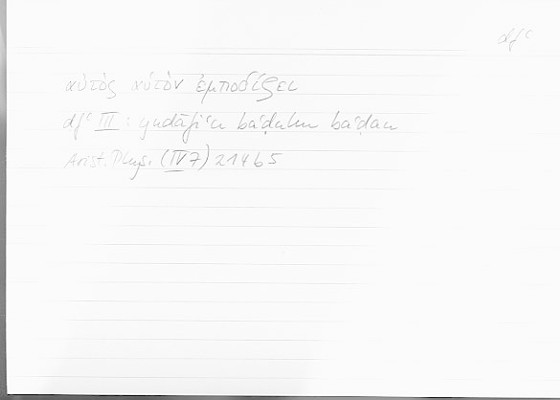 dfʿ
αὐτὸς αὑτὸν ἐμποδίζει
dfʿ III: yudāfiʿu baʿḍuhu baʿḍan
Arist. Phys. (IV 7) 214b5